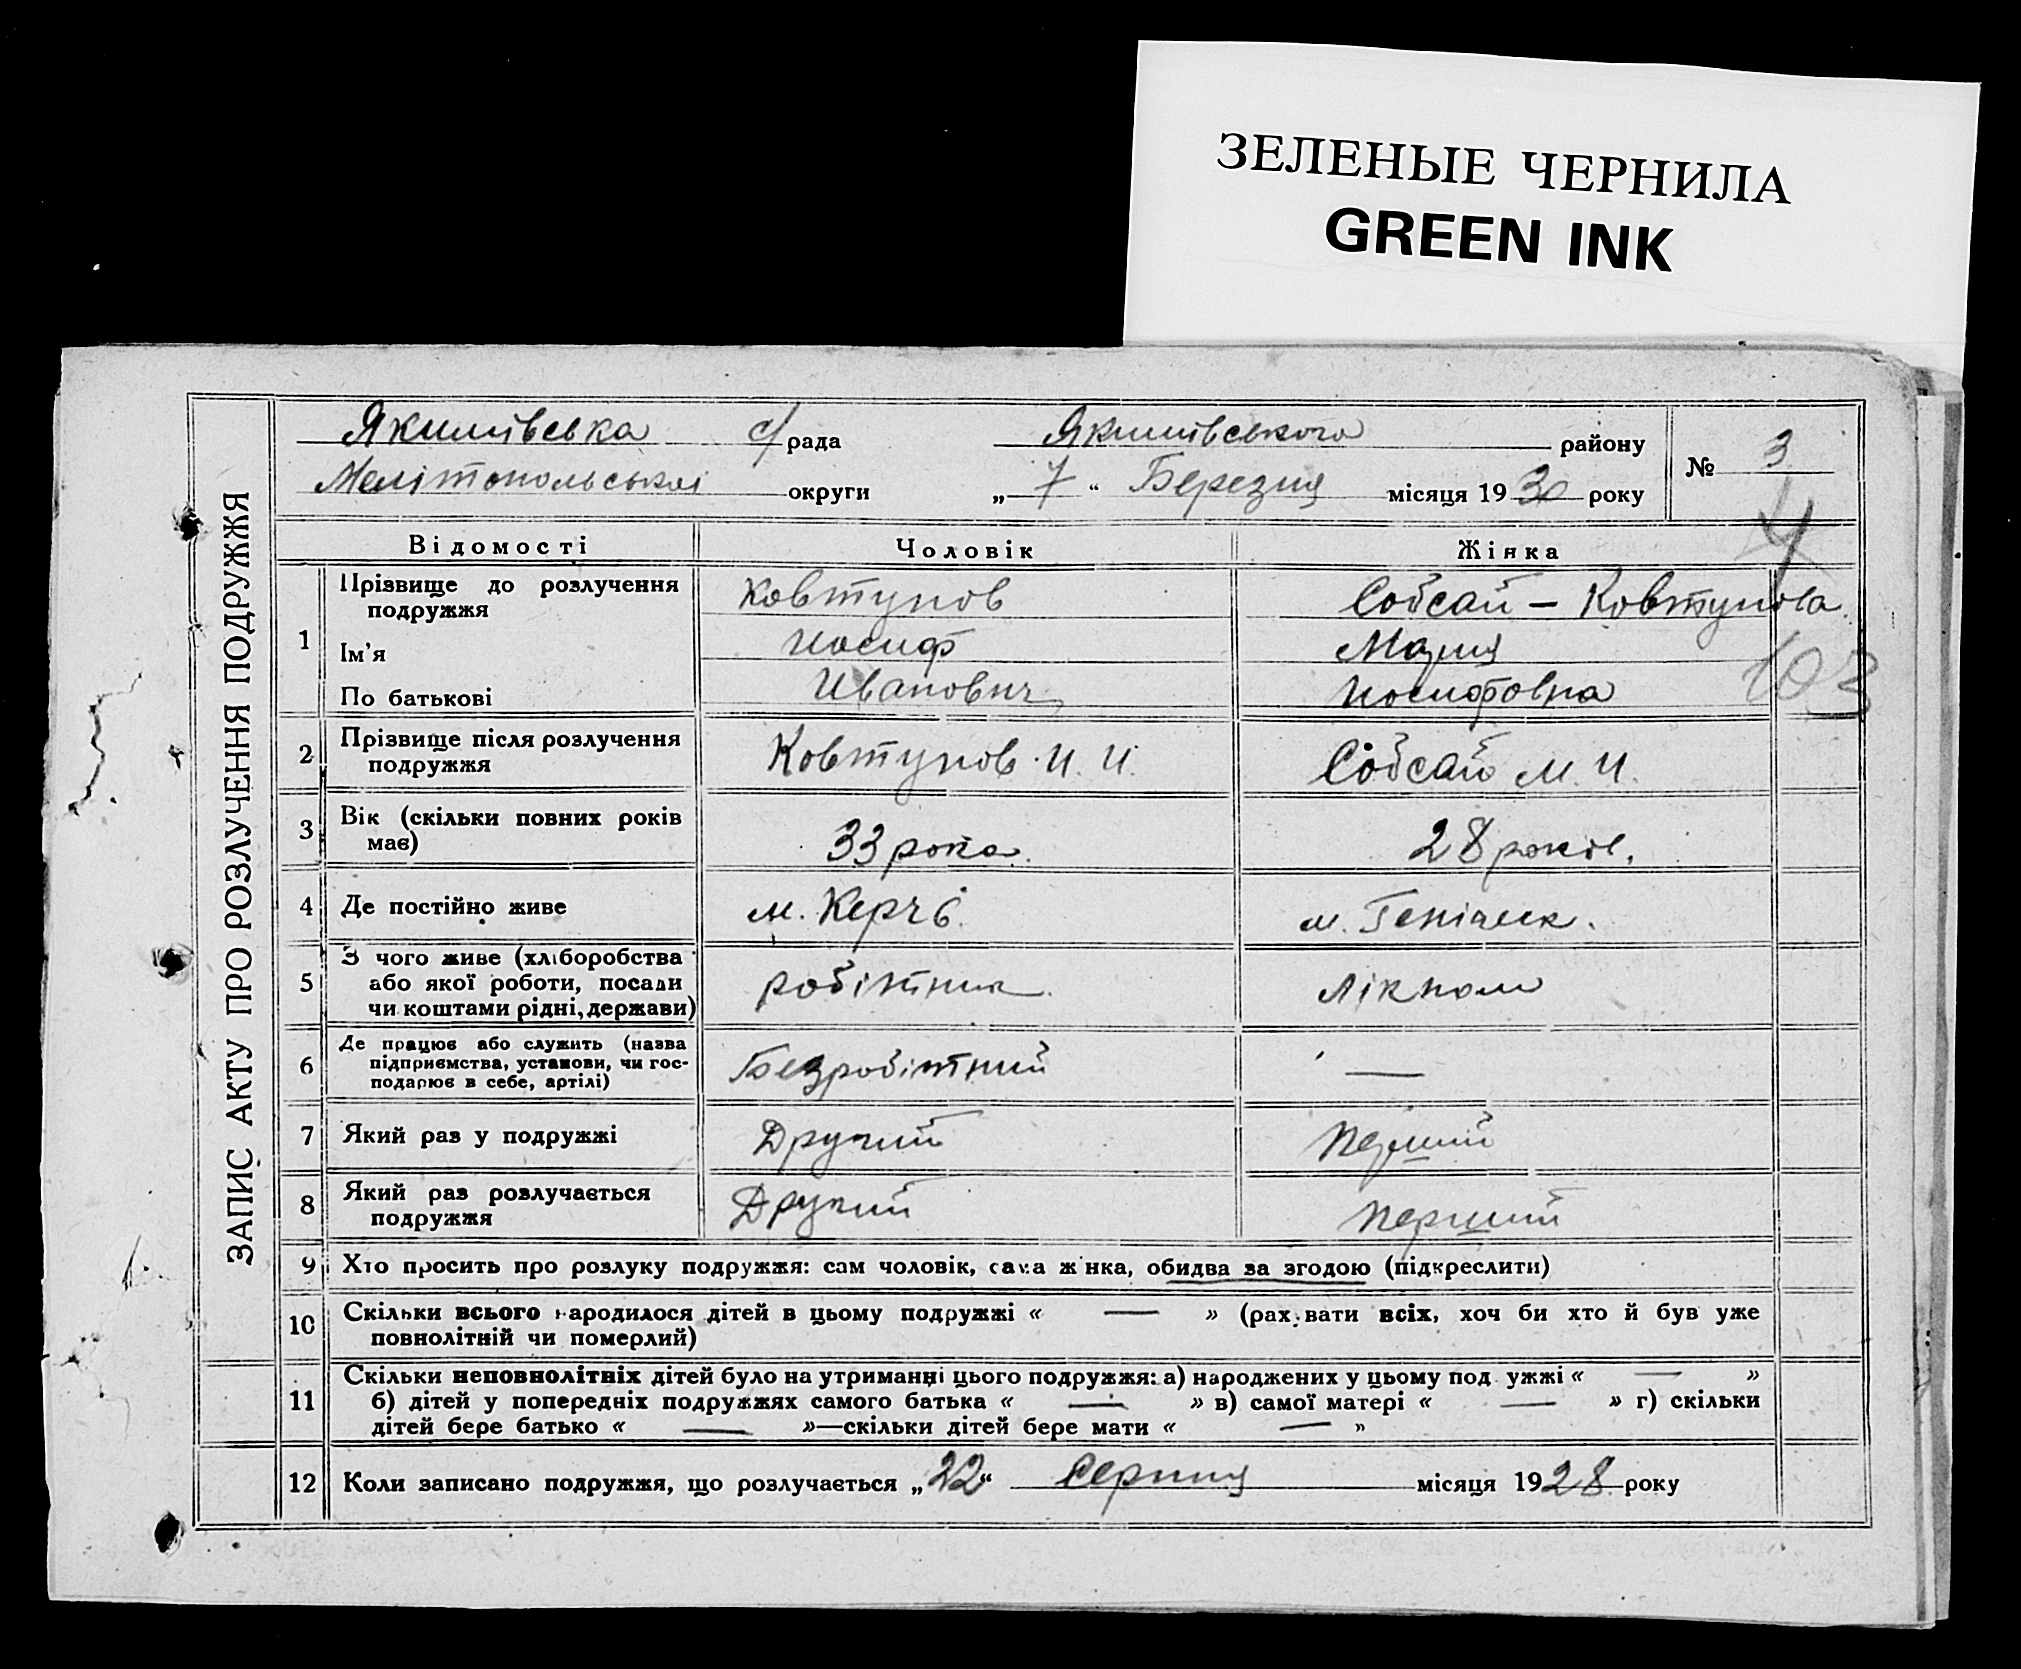 ЗЕЛЕНЫЕ ЧЕРНИЛА
GREEN INK
ЗАПИС АКТУ ПРО РОЗЛУЧЕННЯ ПОДРУЖЖЯ
Якимівська с/рада Якимівського району № 3
Мелітопольської округи „ 7 “ Березня місяця 1930 року
4
Відомості Чоловік Жінка
1 Прізвище до розлучення подружжя Ковтунов Собсай – Ковтунова
Ім'я Иосиф Мария
По батькові Иванович Иосифовна 103
2 Прізвище після розлучення подружжя Ковтунов И. И. Собсай М. И.
3 Вік (скільки повних років має) 33 рока. 28 років.
4 Де постійно живе м. Керчь. м. Геніческ.
5 З чого живе (хліборобства або якої роботи, посади чи коштами рідні, держави) робітник. лікпом
6 Де працює або служить (назва підприємства, установи, чи господарює в себе, артілі) Безробітний —
7 Який раз у подружжі Другий Перший
8 Який раз розлучається подружжя Другий Перший
9 Хто просить про розлуку подружжя: сам чоловік, сама жінка, обидва за згодою (підкреслити)
10 Скільки всього народилося дітей в цьому подружжі « — » (рахувати всіх, хоч би хто й був уже
повнолітній чи померлий)
11 Скільки неповнолітніх дітей було на утриманні цього подружжя: а) народжених у цьому подружжі « — »
б) дітей у попередніх подружжях самого батька « — » в) самої матері « — » г) скільки
дітей бере батько « — »—скільки дітей бере мати « — »
12 Коли записано подружжя, що розлучається „22“ Серпня місяця 1928 року